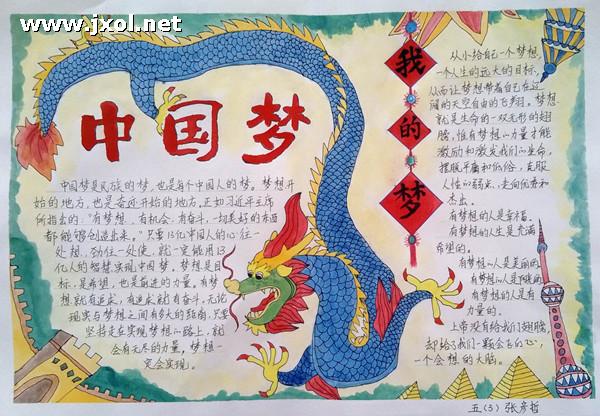 www.jxol.net
中国梦
中国梦是民族的梦,也是每个中国人的梦。梦想开
始的地方,也是奋斗开始的地方,正如习近平主席
所指出的:“有梦想,有机会,有奋斗,一切美好的东西
都能够创造出来。”只要13亿中国人的心往一
处想,劲往一处使,就一定能用13
亿人的智慧实现中国梦。梦想是目
标,是希望,也是前进的力量,有梦
想就有追求,有追求就有奋斗,无论
现实与梦想之间有多大的距离,只要
坚持走在实现梦想的路上,就
会有无尽的力量,梦想一
定会实现。
我的梦
从小给自己一个梦想,
一个人生的远大的目标,
从而让梦想带着自己在辽
阔的天空自由的飞翔。梦想
就是生命的一双无形的翅
膀,惟有梦想的力量才能
激励和激发我们的生命,
摆脱平庸和低俗,克服
人性的弱点,走向优秀和
杰出。
有梦想的人是幸福,
有梦想的人生是充满
希望的。
有梦想的人是美丽的,
有梦想的人是阳光的,
有梦想的人是有
力量的。
上帝没有给我们翅膀,
却给了我们一颗会飞的心,
一个会想的大脑。
五(3) 张彦哲